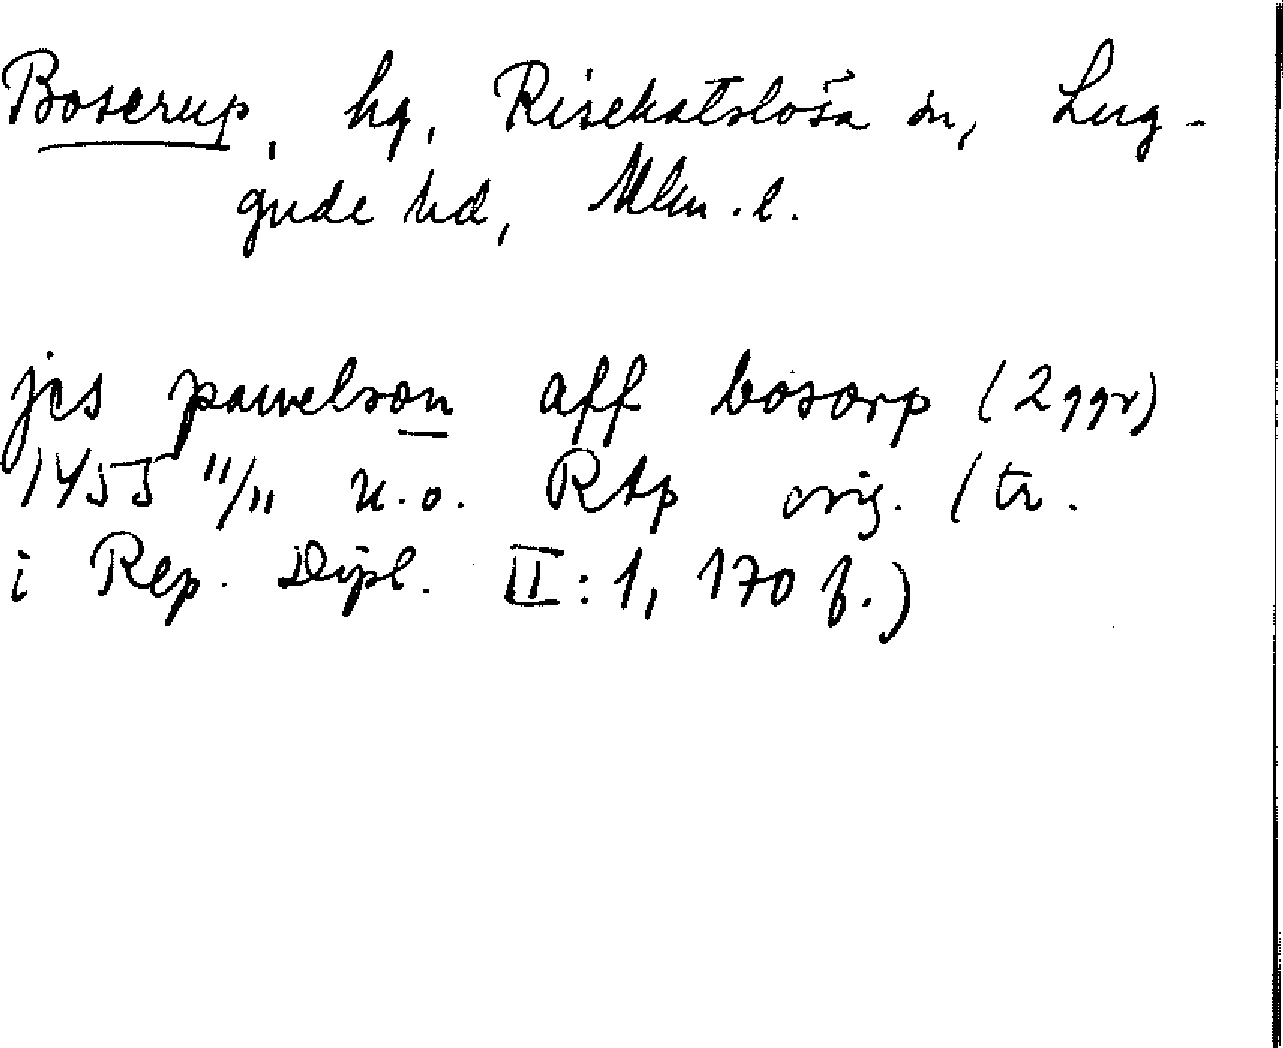 Boserup, hg, Risekatslösa sn, Lug-
gude hd, Mlm.l.
jes pawelson aff bosorp (2ggr)
1455 11/11 u.o. RAp orig. (tr.
i Rep. Dipl. II:1, 170 f.)